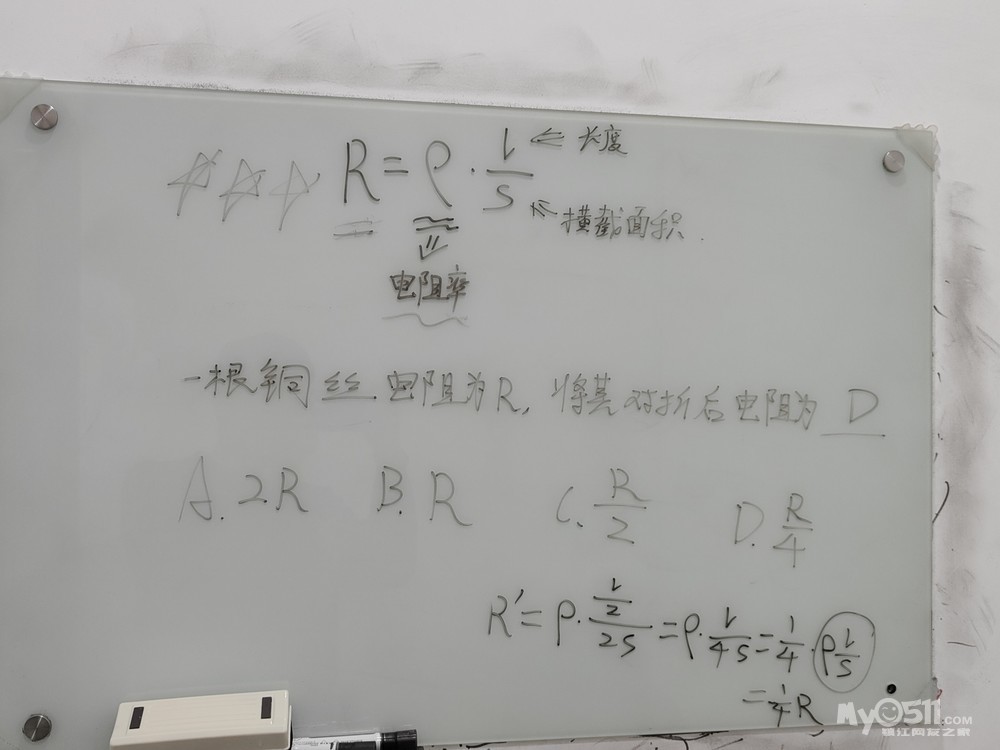 ☆☆☆ R=ρ·l/S ⇐ 长度
⇐ 横截面积.
⇓
电阻率
一根铜丝.电阻为R,将其对折后电阻为 D
A. 2R B. R C. R/2 D. R/4
R′=ρ·(l/2)/2S=ρ·l/4S=1/4·ρl/S
=1/4R
My0511.COM
镇江网友之家